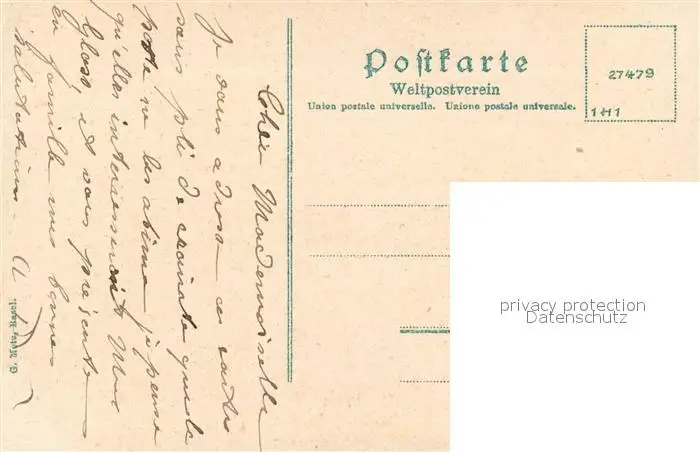 Postkarte
Weltpostverein
Union postale universelle. Unione postale universale.
27479
1H1
privacy protection
Datenschutz
Chère Mademoiselle
Je vous adresse ces cartes
sous pli de crainte que la
poste ne les abime je pense
qu'elles intéresseront Mme
Gloss et vous présente
en famille mes bonnes
salutations
G. Metz, Basel.